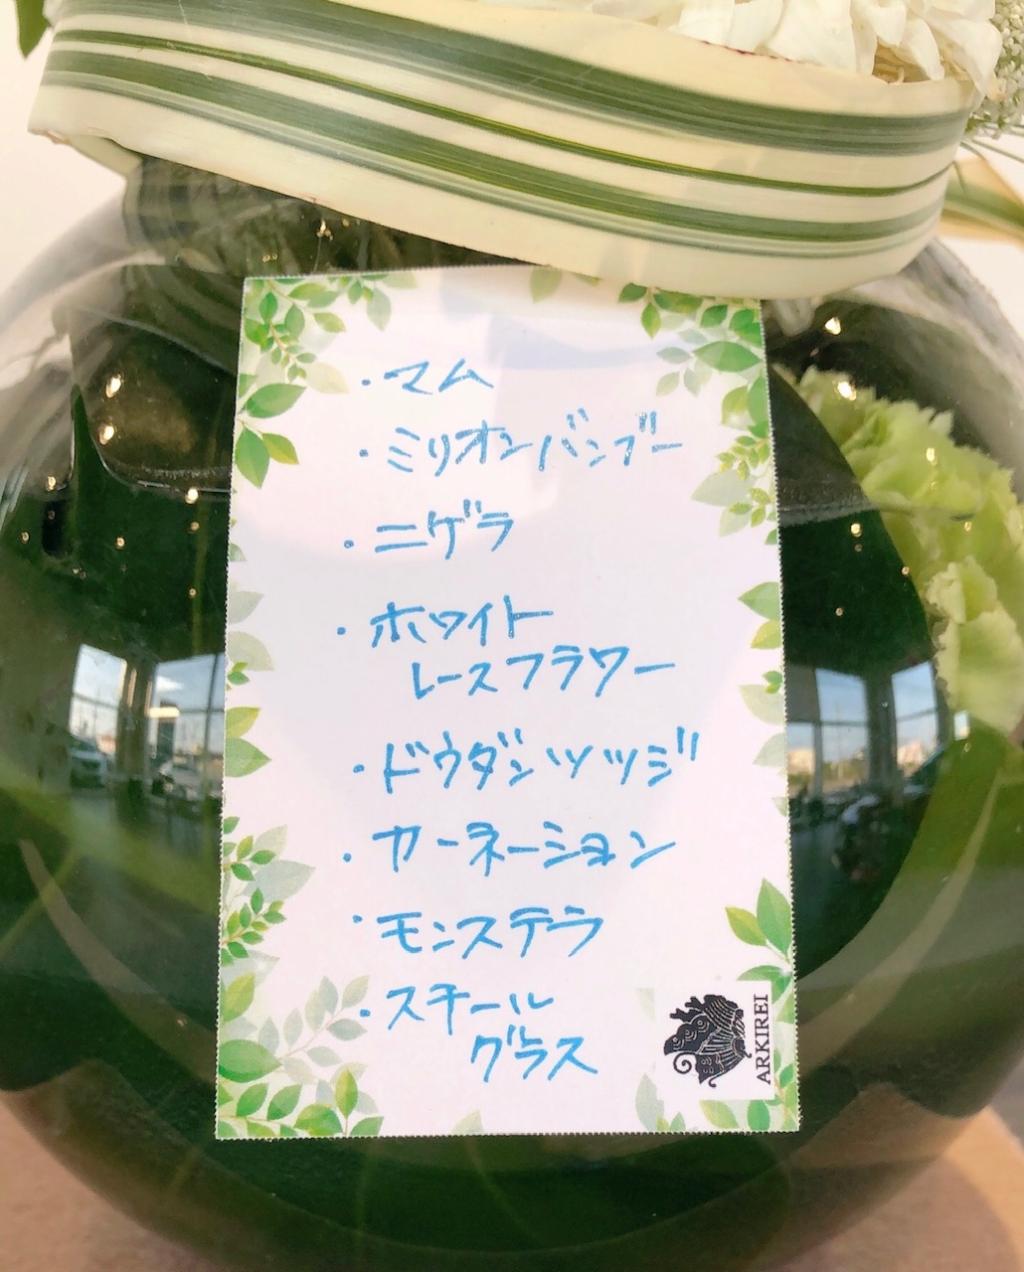 ・マム
・ミリオンバンブー
・ニゲラ
・ホワイト
レースフラワー
・ドウダンツツジ
・カーネーション
・モンステラ
・スチール
グラス
ARKIREI